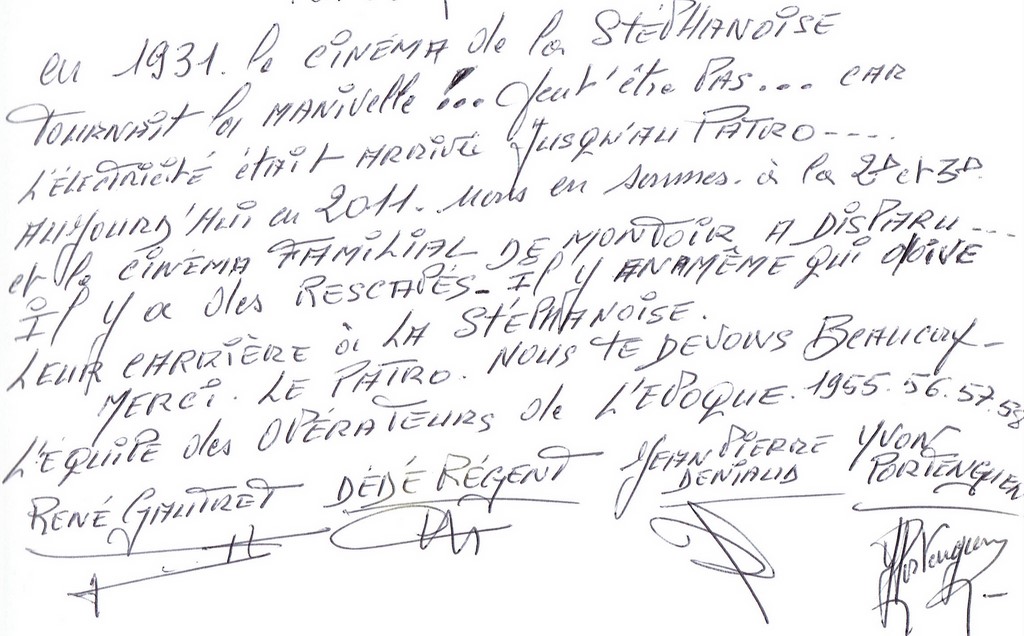 en 1931. le CINÉMA de la STÉPHANOISE
TOURNAIT la MANIVELLE !... peut'être PAS... CAR
L'ÉLECTRICITÉ était ARRIVÉE JUSQU'AU PATRO----.
AUJOURD'HUI en 2011. nous en sommes. à la 2D et 3D.
et le CINÉMA FAMILIAL DE MONTOIR A DISPARU ---
Il y a des RESCAPÉS_ Il Y ANAMÊME qui doive
LEUR CARRIÈRE à LA STÉPHANOISE.
MERCI. LE PATRO. NOUS TE DEVONS BEAUCOUP_
L'ÉQUIPE des OPÉRATEURS de L'EPOQUE. 1955.56.57.58
RENÉ GAUTRET DÉDÉ RÉGENT JEAN PIERRE DENIAUD YVON PORTENGUEN